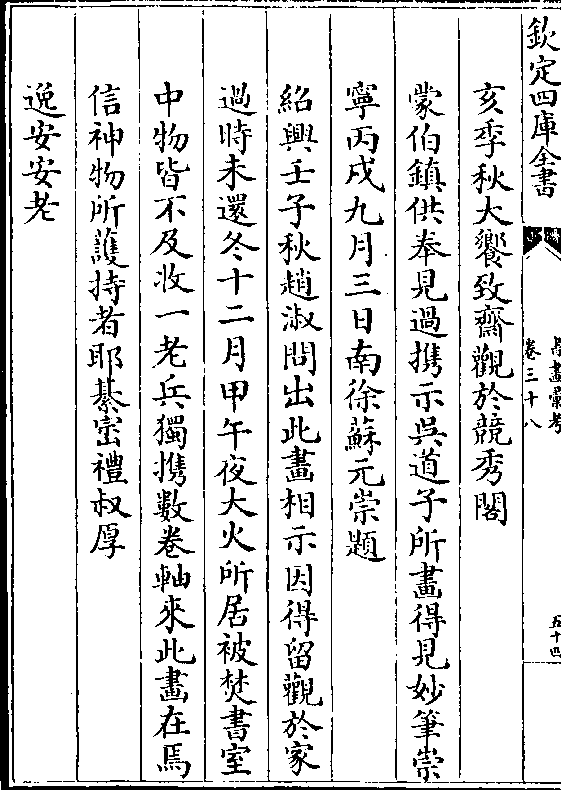 欽定四庫全書
卷三十八
五十四
亥季秋大饗致齋觀於競秀閣
蒙伯鎮供奉見過攜示吳道子所畫得見妙筆崇
寧丙戌九月三日南徐蘇元崇題
紹興壬子秋趙淑問出此畫相示因得留觀於家
過時未還冬十二月甲午夜大火所居被焚書室
中物皆不及收一老兵獨攜數卷軸來此畫在焉
信神物所護持者耶綦崈禮叔厚
逸安安老